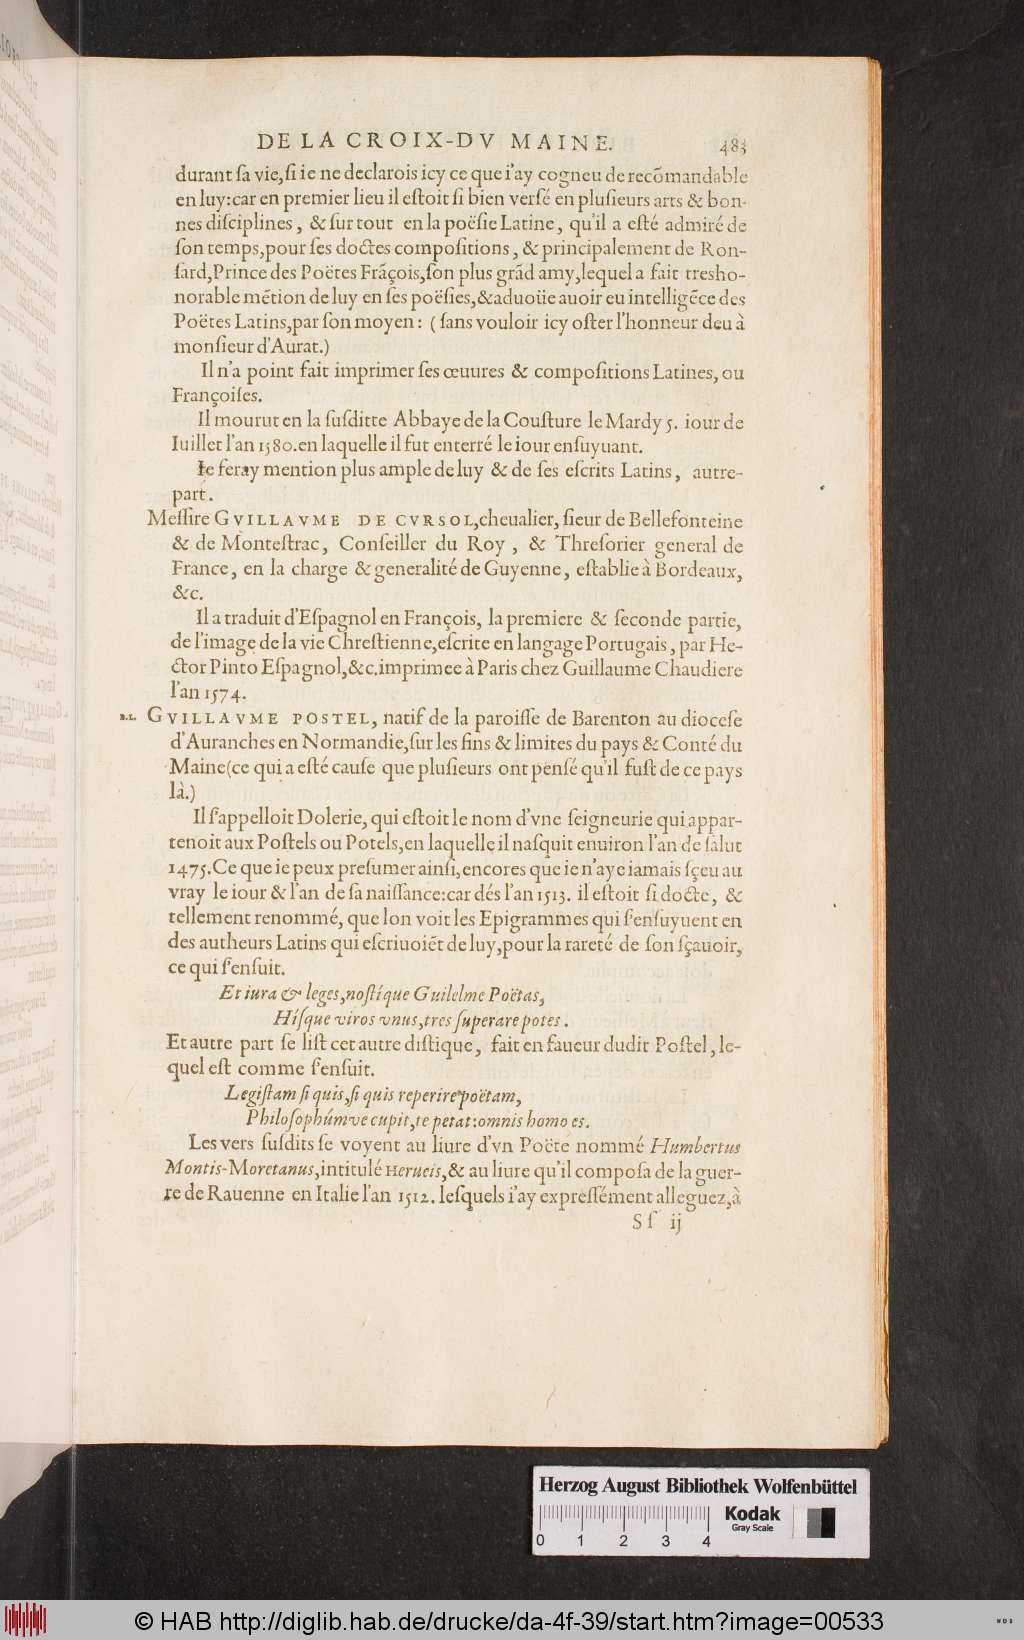 DE LA CROIX-DV MAINE. 483
durant ſa vie, ſi ie ne declarois icy ce que i'ay cogneu de recōmandable
en luy: car en premier lieu il eſtoit ſi bien verſé en pluſieurs arts & bon-
nes diſciplines, & ſur tout en la poëſie Latine, qu'il a eſté admiré de
ſon temps, pour ſes doctes compoſitions, & principalement de Ron-
ſard, Prince des Poëtes Frāçois, ſon plus grād amy, lequel a fait tresho-
norable mētion de luy en ſes poëſies, & aduoüe auoir eu intelligēce des
Poëtes Latins, par ſon moyen: (ſans vouloir icy oſter l'honneur deu à
monſieur d'Aurat.)
Il n'a point fait imprimer ſes œuures & compoſitions Latines, ou
Françoiſes.
Il mourut en la ſuſditte Abbaye de la Couſture le Mardy 5. iour de
Iuillet l'an 1580. en laquelle il fut enterré le iour enſuyuant.
Ie feray mention plus ample de luy & de ſes eſcrits Latins, autre-
part.
Meſſire GVILLAVME DE CVRSOL, cheualier, ſieur de Bellefonteine
& de Monteſtrac, Conſeiller du Roy, & Threſorier general de
France, en la charge & generalité de Guyenne, eſtablie à Bordeaux,
&c.
Il a traduit d'Eſpagnol en François, la premiere & ſeconde partie,
de l'image de la vie Chreſtienne, eſcrite en langage Portugais, par He-
ctor Pinto Eſpagnol, &c. imprimee à Paris chez Guillaume Chaudiere
l'an 1574.
B.L. GVILLAVME POSTEL, natif de la paroiſſe de Barenton au dioceſe
d'Auranches en Normandie, ſur les fins & limites du pays & Conté du
Maine (ce qui a eſté cauſe que pluſieurs ont penſé qu'il fuſt de ce pays
là.)
Il s'appelloit Dolerie, qui eſtoit le nom d'vne ſeigneurie qui appar-
tenoit aux Poſtels ou Potels, en laquelle il naſquit enuiron l'an de ſalut
1475. Ce que ie peux preſumer ainſi, encores que ie n'aye iamais ſçeu au
vray le iour & l'an de ſa naiſſance: car dés l'an 1513. il eſtoit ſi docte, &
tellement renommé, que lon voit les Epigrammes qui ſ'enſuyuent en
des autheurs Latins qui eſcriuoiēt de luy, pour la rareté de ſon ſçauoir,
ce qui ſ'enſuit.
Et iura & leges, noſtíque Guilelme Poëtas,
Hiſque viros vnus, tres ſuperare potes.
Et autre part ſe liſt cet autre diſtique, fait en faueur dudit Poſtel, le-
quel eſt comme ſ'enſuit.
Legiſtam ſi quis, ſi quis reperire poëtam,
Philoſophúmve cupit, te petat: omnis homo es.
Les vers ſuſdits ſe voyent au liure d'vn Poëte nommé Humbertus
Montis-Moretanus, intitulé Herueis, & au liure qu'il compoſa de la guer-
re de Rauenne en Italie l'an 1512. leſquels i'ay expreſſément alleguez, à
Sſ ij
Herzog August Bibliothek Wolfenbüttel
Kodak
Gray Scale
0 1 2 3 4
© HAB http://diglib.hab.de/drucke/da-4f-39/start.htm?image=00533